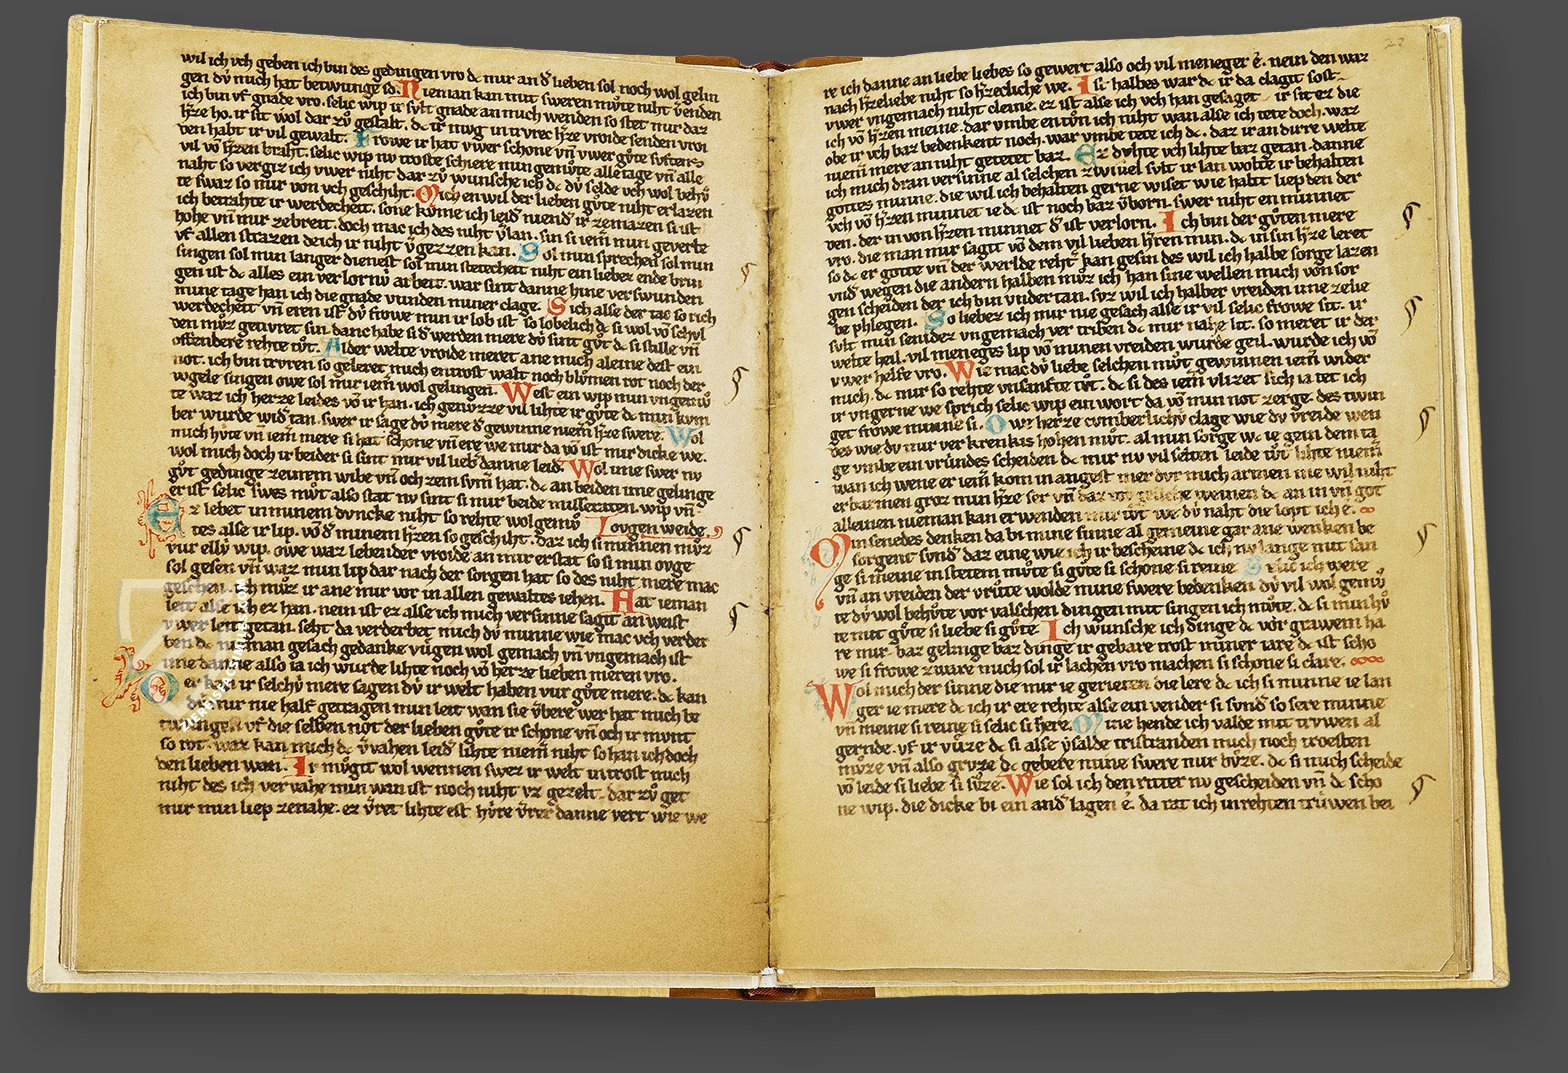 wil ich vch geben ich bin des gedingen vro dc mir an d̕ lieben sol noch wol gelin
gen dv̓ mich hat betwunge so. Nieman kan mit sweren mv̊te niht v̕enden
ich bin vf gnade vro. selic wip ir svlt gnade an mich wenden so stet mir daz
h̕ze ho. ir sit wol dar zv̊ gestalt. dc ir mvg in trvrec h̕ze vroide senden vroi
ven habt ir vil gewalt. Frowe ir hat vwer schone vn̄ vwer gv̊te
vil vō h̕zen braht. selic wip nv troste schiere min gemv̊te alle tage vn̄ alle
naht so vergiz ich vwer niht dar zv̊ wunsche ich dc dv̓ selde vch wol behv̊
te swaz so mir von vch geschiht. Mich en wil der lieben gv̊te niht erlazen
ich betrahte ir werdecheit. sone kv̊me ich leid̕ niend̕ ir ze mazen si ist
hohe vn̄ mir ze breit. doch mac ich des niht v̕lan. sin si iem̄ min geverte
vf allen strazen de ich ir niht v̕gezzen kan. Sol min sprechen sol min
singen sol min langer dienest sol min stetecheit niht ein liebez ende brin
gen ist dc alles ein verlorn̄v arbeit. war sint danne hine verswunden
mine tage han ich die gnade vunden miner clage. Sich alse der tac so rich
werdecheit vn̄ eren ist dv̓ frowe min ir lob ist so lobelich dc si wol vō schvl
den mv̊z getivret sin. danc habe si d̕ werden mere dv̓ sint gv̊t dc si stille vn̄
offendere rehte tv̊t. Alder welte vroide meret ane mich aleine dest ein
not. ich bin trvren so geleret mich en trost walt noch blv̊men rot noch der
vogele singen owe sol mir iem̄ wol gelingen. West ein wip min vngemv̊
te waz ich herze leides vō ir han. ich genv̊zze vil lihte ir gv̊te dc min kvm
ber wurde wid̕ tan. swer ir sage dv̓ mere d̕ gewinne niem̄ h̕ze swere. Wol
mich hv̊te vn̄ iem̄ mere si hat schone vn̄ ere we mir da vō ist mir dicke we.
wol mich doch ir beider si sint mir vil lieb̕ danne leid̕. Wol ime swer nv
gv̊t gedinge ze einem wibe vn̄ och zem svm̄ hat. dc an beiden ime gelinge
er ist selic swes mv̊t also stat nv sint si mir beide misseraten. wip vn̄
Ez lebet in minem dvncke niht so rehte wol gemv̊ Lovgen weide.
tes alse ir lip. vō d̕ minem h̕zen so geschiht. daz ich si minnen mv̊z
vur ellv̓ wip. owe waz lebender vroide an mir erstat so si min ovge
sol gesen vn̄ waz min lip dar nach der sorgen hat so des niht mere mac
geschen. ich mv̊z ir ane mir vor in allen gewaltes iehen. Hat ieman
leit alse ich ez han. nein ist ez alse ich mich versinne sagit an weist
vwer leit getan. seht da verderbet mich dv̓ minne wie mac vch verder
ben dc nieman gesach gedanke vůgen wol gemach vn̄ vngemach ist
ime danne also ia ich wurde lihte noch vō herze lieben mieren vro.
Der kan ir selchv̓ mere sagen dv̓ ir welt haben vur gv̊te mere. dc kan
der mir nie half getragen min leit wan sie v̕bere wer hat mich be
twungen vf die selben not der lieben gv̊te ir schone vn̄ och ir munt
so rot. waz kan mich dc v̕vahen leid̕ lihte niem̄ niht so han ich doch
den lieben wan. Ir mv̊git wol wennen swez ir welt in trost mich
niht des ich vervahe min wan ist noch niht vz gezelt. dar zv̊ get
mir min liep ze nahe. ez v̕ret lihte est hv̊re v̕rer danne vert wie we
re ich danne an liebe liebes so gewert also och vil meneger ē. nein den waz
nach h̕zeliebe niht so h̕zecliche we. Ist halbes war dc ir da clagit sost
vwer vngemach niht cleine. ez ist alse ich vch han gesaget ir sit ez die
ich vō h̕zen meine. dar vmbe entv̊n ich niht wan alse ich tete doch. waz
obe ir vch baz bedenkent noch. war vmbe tete ich dc. daz ir an dirre welte
niem̄ mere an niht getetet baz. Ez dvhte vch lihte baz getan. danne
ich mich dran versinne al selchen zwivel svlt ir lan wolte ir behalten
gottes minne. die wil ich behalten gerne wiset wie habit liep den der
vch vō h̕zen minnet ie dc ist noch baz v̕born. swer niht en minnet
ven. der in von h̕zen minnet d̕ ist verlorn. Ich bin der gv̊ten mere
vro. die man mir sagit vō dem vil lieben h̕ren min. dc in sin h̕ze leret
so dc er gotte vn̄ der werlde reht̕ kan gesin des wil ich halbe sorge lazen
vnd̕ wegen die andern halben mv̊z ich han sine wellen mich vōn sor
gen scheiden der ich bin vndertan. svz wil ich halber vreiden ime zelie
be phlegen. So liebez ich mir nie gesach alse ir vil selic frowe sit. ir
svlt min sender vngemach vertriben dc mir nahe lit. so meret ir der
welte heil. vil meneges lip vō minen vreiden wurde geil. wurde ich vō
vwer helfe vro. Wie mac dv̓ liebe selchen mv̊t gewinnen iem̄ wider
mich. dc mir so rehte vnsanfte tv̊t. dc si des iem̄ vlizet sich ia tet ich
ir vngerne we sprich selic wip ein wort da vō min not zerge. des twin
get frowe minne si. Owe herze cvmberlichv̓ clage wie dv̓ v̕reide wen
des wie dv mir ver krenkis hohen mv̊t. al min sorge we ie gein dem ta
ge vmbe ein vrúndes scheiden dc mir nv vil selten leide tv̊t lihte niem̄
wan ich wene er iem̄ kom in angest mer dvr mich armen nie wil niht
erbarmen groz min h̕ze ser vn̄ daz weinen dc an in vn̄ got
alleinen nieman kan erwenden mir tv̊t we dv̓ naht die lopt ich e.
Min senedes denken da bi mine sinne al gemeine gar ane wenken be
sorgent svnd̕ daz eine wie ich ir bescheine dc ich nv lange mit san
ge si meine in stetem mv̊te si gv̊te si schone si reine Selic ich were
vn̄ an vreiden der vrv̊te wolde mine swere bedenken dv̓ vil wol gemv̊
te dv̓ wol behv̊te vor valschen dingen mit singen ich mv̊te. dc si min hv̊
te mit gv̊te si liebe si gv̊te. Ich wunsche ich dinge dc vor grawem ha
re mir baz gelinge baz dinge ir gebare trost miner iare dc ist scho
we si frowe zware mich sol ir lachen vro machen si schone si clare.
Wol mich der sinne die mir ie gerieten die lere dc ich si minne ie lan
ger ie mere dc ich ir ere rehte alse ein vvender si svnd̕ so sere minne
vn̄ meine si reine si selic si here. Mine hende ich valde mit trvwen al
gernde. vf ir vůze dc si alse ysalde tristranden mich noch troesten
mv̊ze vn̄ also grvze dc gebere mine swere mir bv̊ze. dc si mich scheide
vō leide si liebe si sv̊ze. Wie sol ich den ritter nv gescheiden vn̄ dc scho
ne wip. die dicke bi ein and̕ lagen ē. da rat ich in rehten trúwen bei